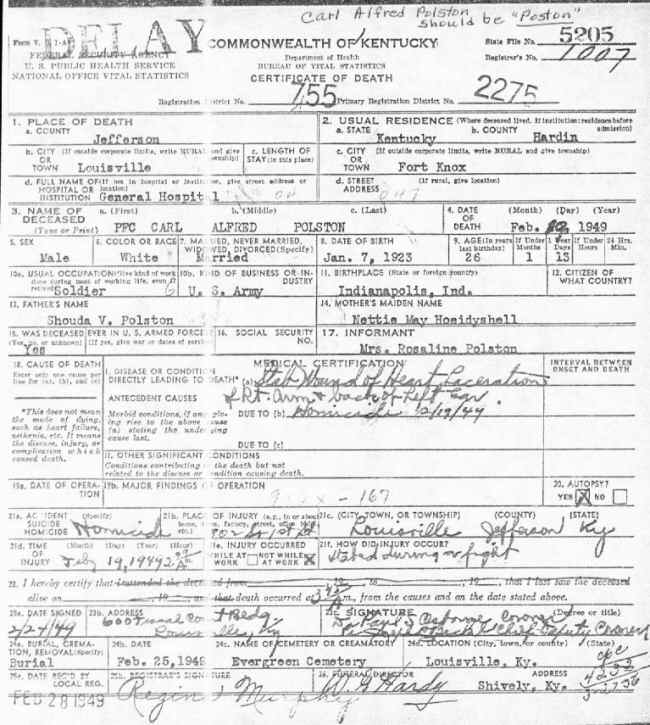 Carl Alfred Polston
should be "Poston"
DELAY
COMMONWEALTH OF KENTUCKY
State File No. 5205
FEDERAL SECURITY AGENCY
Department of Health
Registrar's No. 1007
U. S. PUBLIC HEALTH SERVICE
BUREAU OF VITAL STATISTICS
NATIONAL OFFICE VITAL STATISTICS
CERTIFICATE OF DEATH
Registration District No. 755 Primary Registration District No. 2275
1. PLACE OF DEATH
a. COUNTY
Jefferson
2. USUAL RESIDENCE (Where deceased lived. If institution: residence before admission)
a. STATE Kentucky b. COUNTY Hardin
b. CITY (If outside corporate limits, write RURAL and give township)
OR TOWN Louisville
c. LENGTH OF STAY (in this place)
c. CITY (If outside corporate limits, write RURAL and give township)
OR TOWN Fort Knox
d. FULL NAME OF (If not in hospital or institution, give street address or location)
HOSPITAL OR INSTITUTION General Hospital
d. STREET ADDRESS (If rural, give location)
3. NAME OF DECEASED (Type or Print)
a. (First) b. (Middle) c. (Last)
PFC CARL ALFRED POLSTON
4. DATE OF DEATH (Month) (Day) (Year)
Feb. 1949
5. SEX
Male
6. COLOR OR RACE
White
7. MARRIED, NEVER MARRIED, WIDOWED, DIVORCED (Specify)
Married
8. DATE OF BIRTH
Jan. 7, 1923
9. AGE (In years last birthday) If Under 1 If Under 24 Hrs.
Months Days Hours Min.
26 1 13
10a. USUAL OCCUPATION (Give kind of work done during most of working life, even if retired)
Soldier
10b. KIND OF BUSINESS OR INDUSTRY
U. S. Army
11. BIRTHPLACE (State or foreign country)
Indianapolis, Ind.
12. CITIZEN OF WHAT COUNTRY?
13. FATHER'S NAME
Shouda V. Polston
14. MOTHER'S MAIDEN NAME
Nettie May Hoeidyshell
15. WAS DECEASED EVER IN U. S. ARMED FORCES?
(Yes, no, or unknown) (If yes, give war or dates of service)
Yes
16. SOCIAL SECURITY NO.
17. INFORMANT
Mrs. Rosaline Polston
18. CAUSE OF DEATH
Enter only one cause per line for (a), (b), and (c)
MEDICAL CERTIFICATION
INTERVAL BETWEEN ONSET AND DEATH
I. DISEASE OR CONDITION
DIRECTLY LEADING TO DEATH* (a) Stab Wound of Heart Laceration
of Rt. Arm & back of Left Ear
*This does not mean the mode of dying, such as heart failure, asthenia, etc. It means the disease, injury, or complication which caused death.
ANTECEDENT CAUSES
Morbid conditions, if any, giving rise to the above cause (a) stating the underlying cause last.
DUE TO (b) Homicide 2/19/49
DUE TO (c)
II. OTHER SIGNIFICANT CONDITIONS
Conditions contributing to the death but not related to the disease or condition causing death.
19a. DATE OF OPERATION
19b. MAJOR FINDINGS OF OPERATION
- 167
20. AUTOPSY?
YES X NO
21a. ACCIDENT SUICIDE HOMICIDE (Specify)
Homicide
21b. PLACE OF INJURY (e.g., in or about home, farm, factory, street, office bldg., etc.)
21c. (CITY, TOWN, OR TOWNSHIP) (COUNTY) (STATE)
Louisville Jefferson Ky
21d. TIME OF INJURY (Month) (Day) (Year) (Hour)
Feby 19, 1949
21e. INJURY OCCURRED
WHILE AT WORK NOT WHILE AT WORK X
21f. HOW DID INJURY OCCUR?
Stabed during a fight
22. I hereby certify that I attended the deceased from , 19 to , 19 , that I last saw the deceased
alive on , 19 , and that death occurred at m., from the causes and on the date stated above.
23a. DATE SIGNED
2/24/49
23b. ADDRESS
23c. SIGNATURE (Degree or title)
Coroner
Chief Deputy Coroner
24a. BURIAL, CREMATION, REMOVAL (Specify)
Burial
24b. DATE
Feb. 25, 1949
24c. NAME OF CEMETERY OR CREMATORY
Evergreen Cemetery
24d. LOCATION (City, town, or county) (State)
Louisville, Ky.
25a. DATE REC'D BY LOCAL REG.
FEB 28 1949
25b. REGISTRAR'S SIGNATURE
26. FUNERAL DIRECTOR ADDRESS
Hardy Shively, Ky.